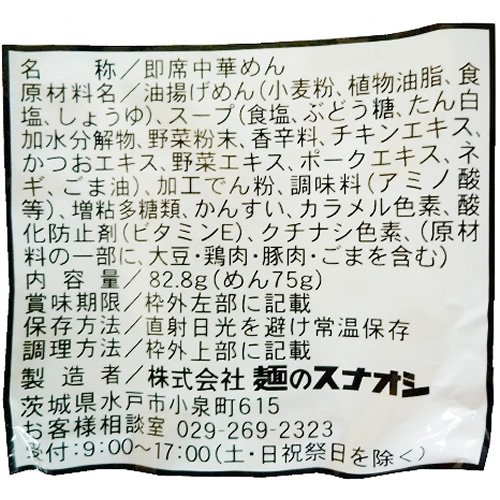 名称/即席中華めん
原材料名/油揚げめん(小麦粉、植物油脂、食
塩、しょうゆ)、スープ(食塩、ぶどう糖、たん白
加水分解物、野菜粉末、香辛料、チキンエキス、
かつおエキス、野菜エキス、ポークエキス、ネ
ギ、ごま油)、加工でん粉、調味料(アミノ酸
等)、増粘多糖類、かんすい、カラメル色素、酸
化防止剤(ビタミンE)、クチナシ色素、(原材
料の一部に、大豆・鶏肉・豚肉・ごまを含む)
内容量/82.8g(めん75g)
賞味期限/枠外左部に記載
保存方法/直射日光を避け常温保存
調理方法/枠外上部に記載
製造者/株式会社 麺のスナオシ
茨城県水戸市小泉町615
お客様相談室 029-269-2323
受付:9:00~17:00(土・日祝祭日を除く)